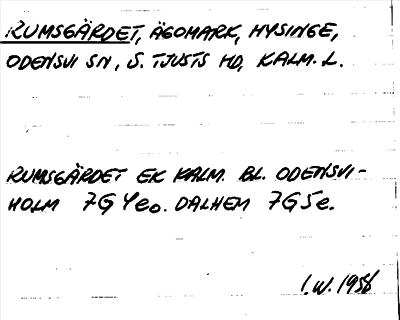 RUMSGÄRDET, ÄGOMARK, HYSINGE,
ODENSVI SN, S. TJUSTS HD, KALM. L.
RUMSGÄRDET EK KALM. BL. ODENSVI-
HOLM 7G 4e o. DALHEM 7G 5e.
I.W. 1956